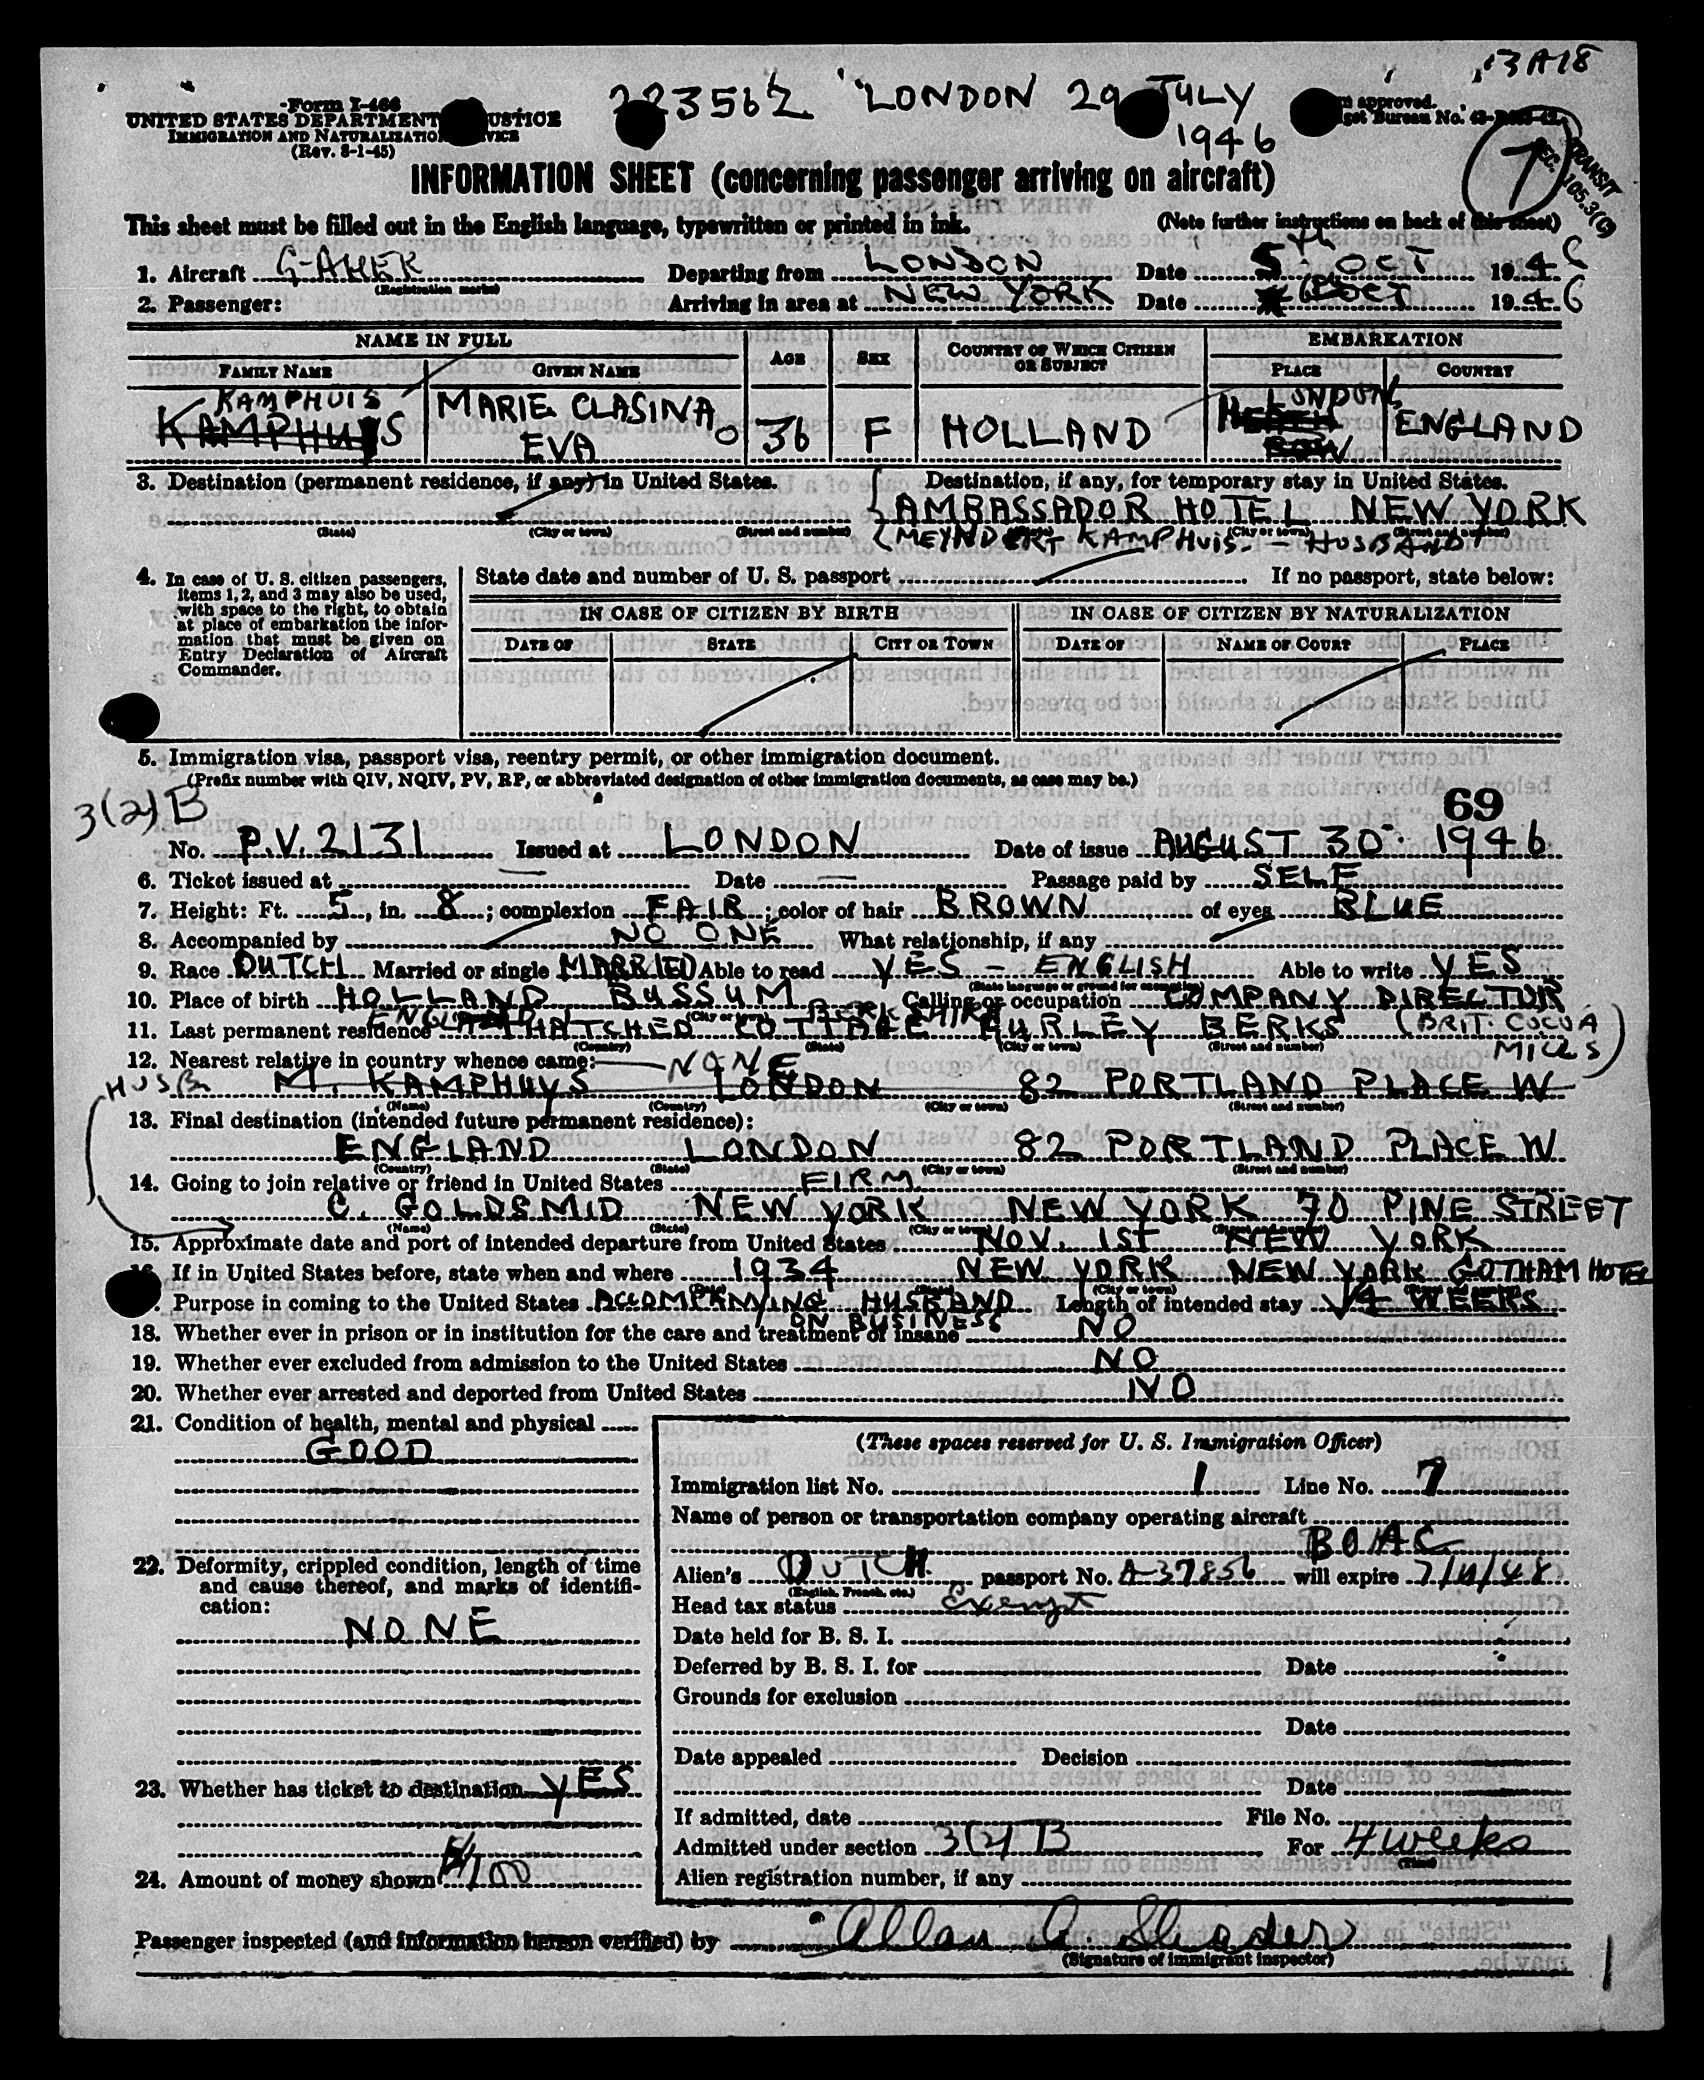 13A18
223562 LONDON 29 JULY
1946
Form I-466
UNITED STATES DEPARTMENT USTICE
IMMIGRATION AND NATURALIZATIO VICE
(Rev. 8-1-45)
m approved.
get Bureau No.
7
TRANSIT
SEC. 105.3(G)
INFORMATION SHEET (concerning passenger arriving on aircraft)
This sheet must be filled out in the English language, typewritten or printed in ink. (Note further instructions on back of this sheet)
1. Aircraft G-AHEK Departing from LONDON Date 5th OCT 1946
(Registration marks)
2. Passenger: Arriving in area at NEW YORK Date 6 OCT 1946
NAME IN FULL AGE SEX COUNTRY OF WHICH CITIZEN OR SUBJECT EMBARKATION
FAMILY NAME GIVEN NAME PLACE COUNTRY
KAMPHUIS MARIE CLASINA LONDON,
KAMPHUYS EVA 36 F HOLLAND HEATH ROW ENGLAND
3. Destination (permanent residence, if any) in United States. Destination, if any, for temporary stay in United States.
AMBASSADOR HOTEL NEW YORK
(State) (City or town) (Street and number) (State) (City or town) (Street and number)
MEYNDERT KAMPHUIS. - HUSBAND
4. In case of U. S. citizen passengers, items 1, 2, and 3 may also be used, with space to the right, to obtain at place of embarkation the information that must be given on Entry Declaration of Aircraft Commander.
State date and number of U. S. passport If no passport, state below:
IN CASE OF CITIZEN BY BIRTH IN CASE OF CITIZEN BY NATURALIZATION
DATE OF STATE CITY OR TOWN DATE OF NAME OF COURT PLACE
5. Immigration visa, passport visa, reentry permit, or other immigration document.
(Prefix number with QIV, NQIV, PV, RP, or abbreviated designation of other immigration documents, as case may be.)
3(2)B
69
No. P.V. 2131 Issued at LONDON Date of issue AUGUST 30 1946
6. Ticket issued at — Date — Passage paid by SELF
7. Height: Ft. 5, in. 8; complexion FAIR; color of hair BROWN of eyes BLUE
8. Accompanied by NO ONE What relationship, if any
9. Race DUTCH Married or single MARRIED Able to read YES - ENGLISH Able to write YES
(State language or ground for exemption)
10. Place of birth HOLLAND BUSSUM Calling or occupation COMPANY DIRECTOR
(City or town)
ENGLAND BERKSHIRE
11. Last permanent residence THATCHED COTTAGE HURLEY BERKS (BRIT. COCOA MILLS)
(Country) (State) (City or town) (Street and number)
12. Nearest relative in country whence came: NONE
HUSB. M. KAMPHUYS LONDON 82 PORTLAND PLACE W
(Name) (Country) (City or town) (Street and number)
13. Final destination (intended future permanent residence):
ENGLAND LONDON 82 PORTLAND PLACE W
(Country) (State) (City or town) (Street and number)
14. Going to join relative or friend in United States FIRM
C. GOLDSMID NEW YORK NEW YORK 70 PINE STREET
(Name) (State) (City or town) (Street and number)
15. Approximate date and port of intended departure from United States NOV. 1ST NEW YORK
If in United States before, state when and where 1934 NEW YORK NEW YORK GOTHAM HOTEL
Purpose in coming to the United States ACCOMPANYING HUSBAND Length of intended stay 4 WEEKS
ON BUSINESS
18. Whether ever in prison or in institution for the care and treatment of insane NO
19. Whether ever excluded from admission to the United States NO
20. Whether ever arrested and deported from United States NO
21. Condition of health, mental and physical
GOOD
22. Deformity, crippled condition, length of time and cause thereof, and marks of identification:
NONE
23. Whether has ticket to destination YES
24. Amount of money shown 100
(These spaces reserved for U. S. Immigration Officer)
Immigration list No. 1 Line No. 7
Name of person or transportation company operating aircraft
BOAC
Alien's DUTCH passport No. A-37856 will expire 7/11/48
(English, French, etc.)
Head tax status Exempt
Date held for B. S. I.
Deferred by B. S. I. for Date
Grounds for exclusion
Date
Date appealed Decision
Date
If admitted, date File No.
Admitted under section 3(2)B For 4 weeks
(Time)
Alien registration number, if any
Passenger inspected (and information hereon verified) by Allan
(Signature of immigrant inspector)
1